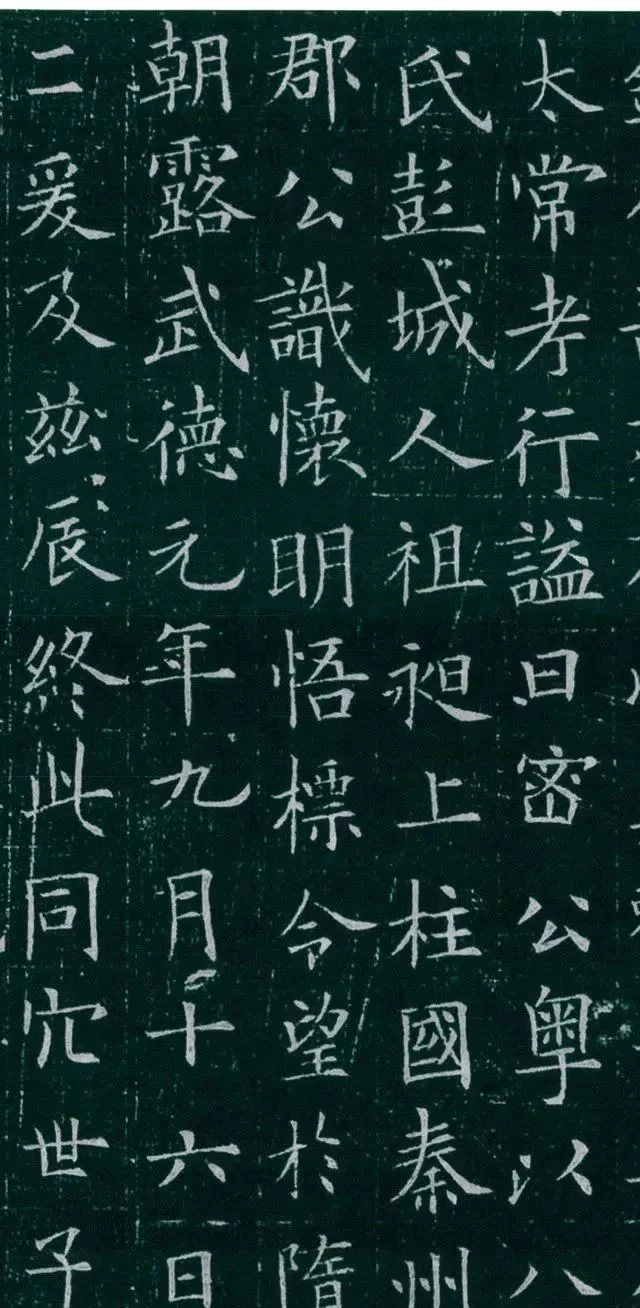 太常考行謚曰密公粤以八
氏彭城人祖昶上柱國秦州
郡公識懷明悟標令望於隋
朝露武德元年九月十六日
二爰及兹辰終此同穴世子